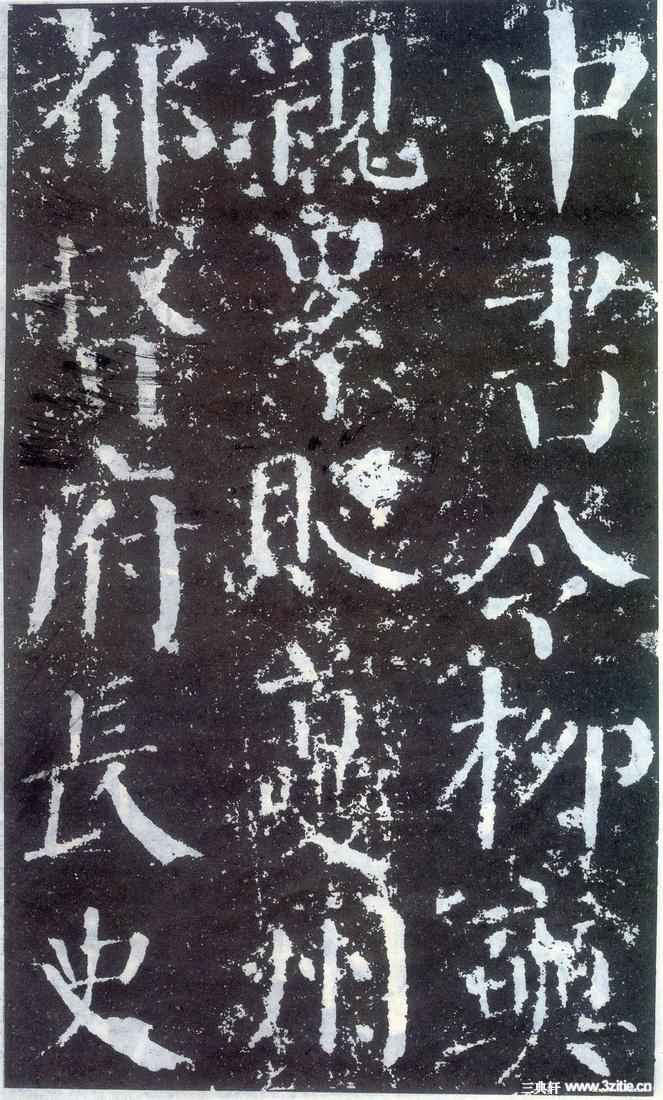 中書令柳奭
親累貶夔州
都督府長史
三典轩 www.3zitie.cn